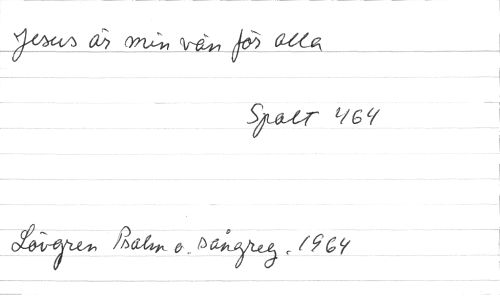 Jesus är min vän för alla
Spalt 464
Lövgren Psalm o. sångreg. 1964